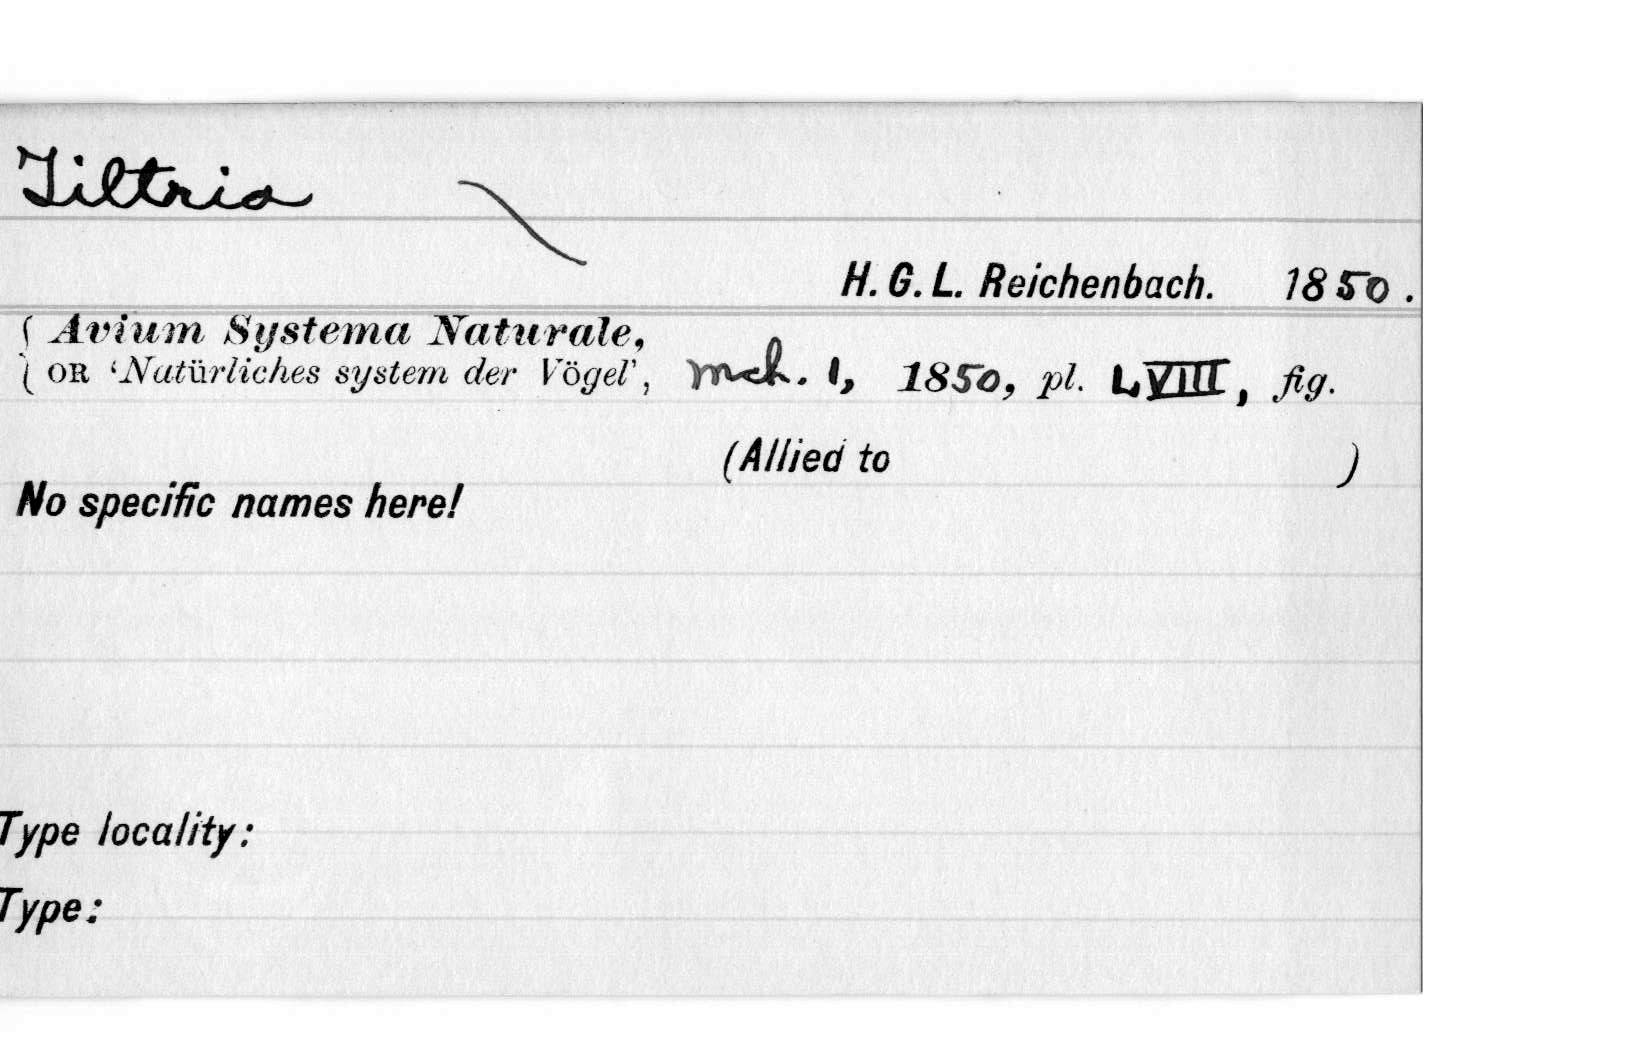 Tiltria
H. G. L. Reichenbach. 1850.
{ Avium Systema Naturale,
OR 'Natürliches system der Vögel', mch. 1, 1850, pl. LVIII, fig.
(Allied to )
No specific names here!
Type locality:
Type: